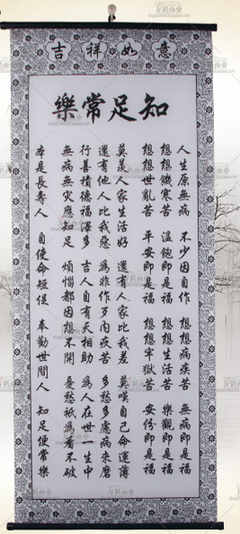 吉祥如意
知足常樂
人生原無病 不少因自作 想想病疾苦 無病即是福
想想饑寒苦 溫飽即是福 想想生活苦 樂觀即是福
想想世亂苦 平安即是福 想想牢獄苦 安份即是福
莫羨人家生活好 還有人家比我差 莫嘆自己命運薄
還有他人比我惡 為非作歹內疚苦 多愁多慮病來磨
行善積德福澤多 吉人自有天相助 為人在世一生中
無病無災應知足 煩惱都因想不開 憂愁祇為看不破
本是長壽人 自使命短促 奉勸世間人 知足便常樂